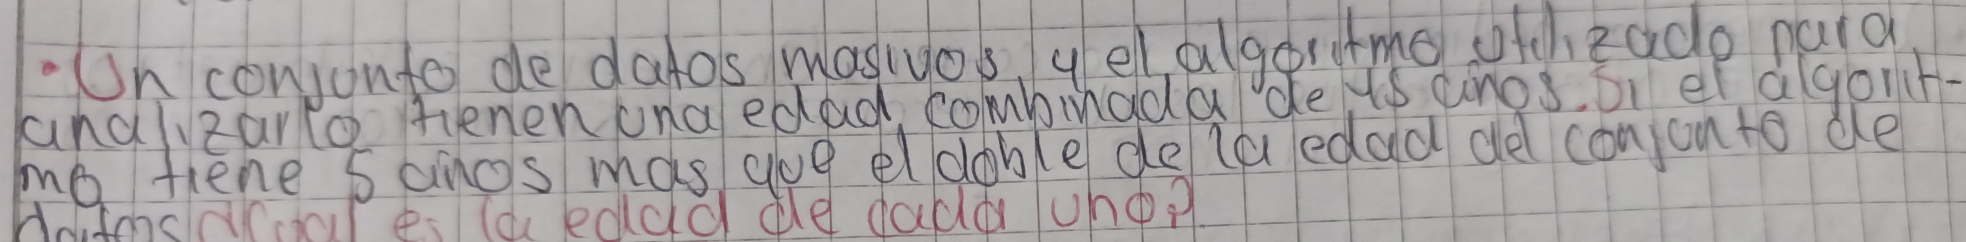 • Un conjunto de datos masivos, y el algoritmo utilizado para
analizarlo tienen una edad combinada de 45 años. Si el algorit-
mo tiene 5 años mas que el doble de la edad del conjunto de
datos ¿Cual es la edad de cada uno?